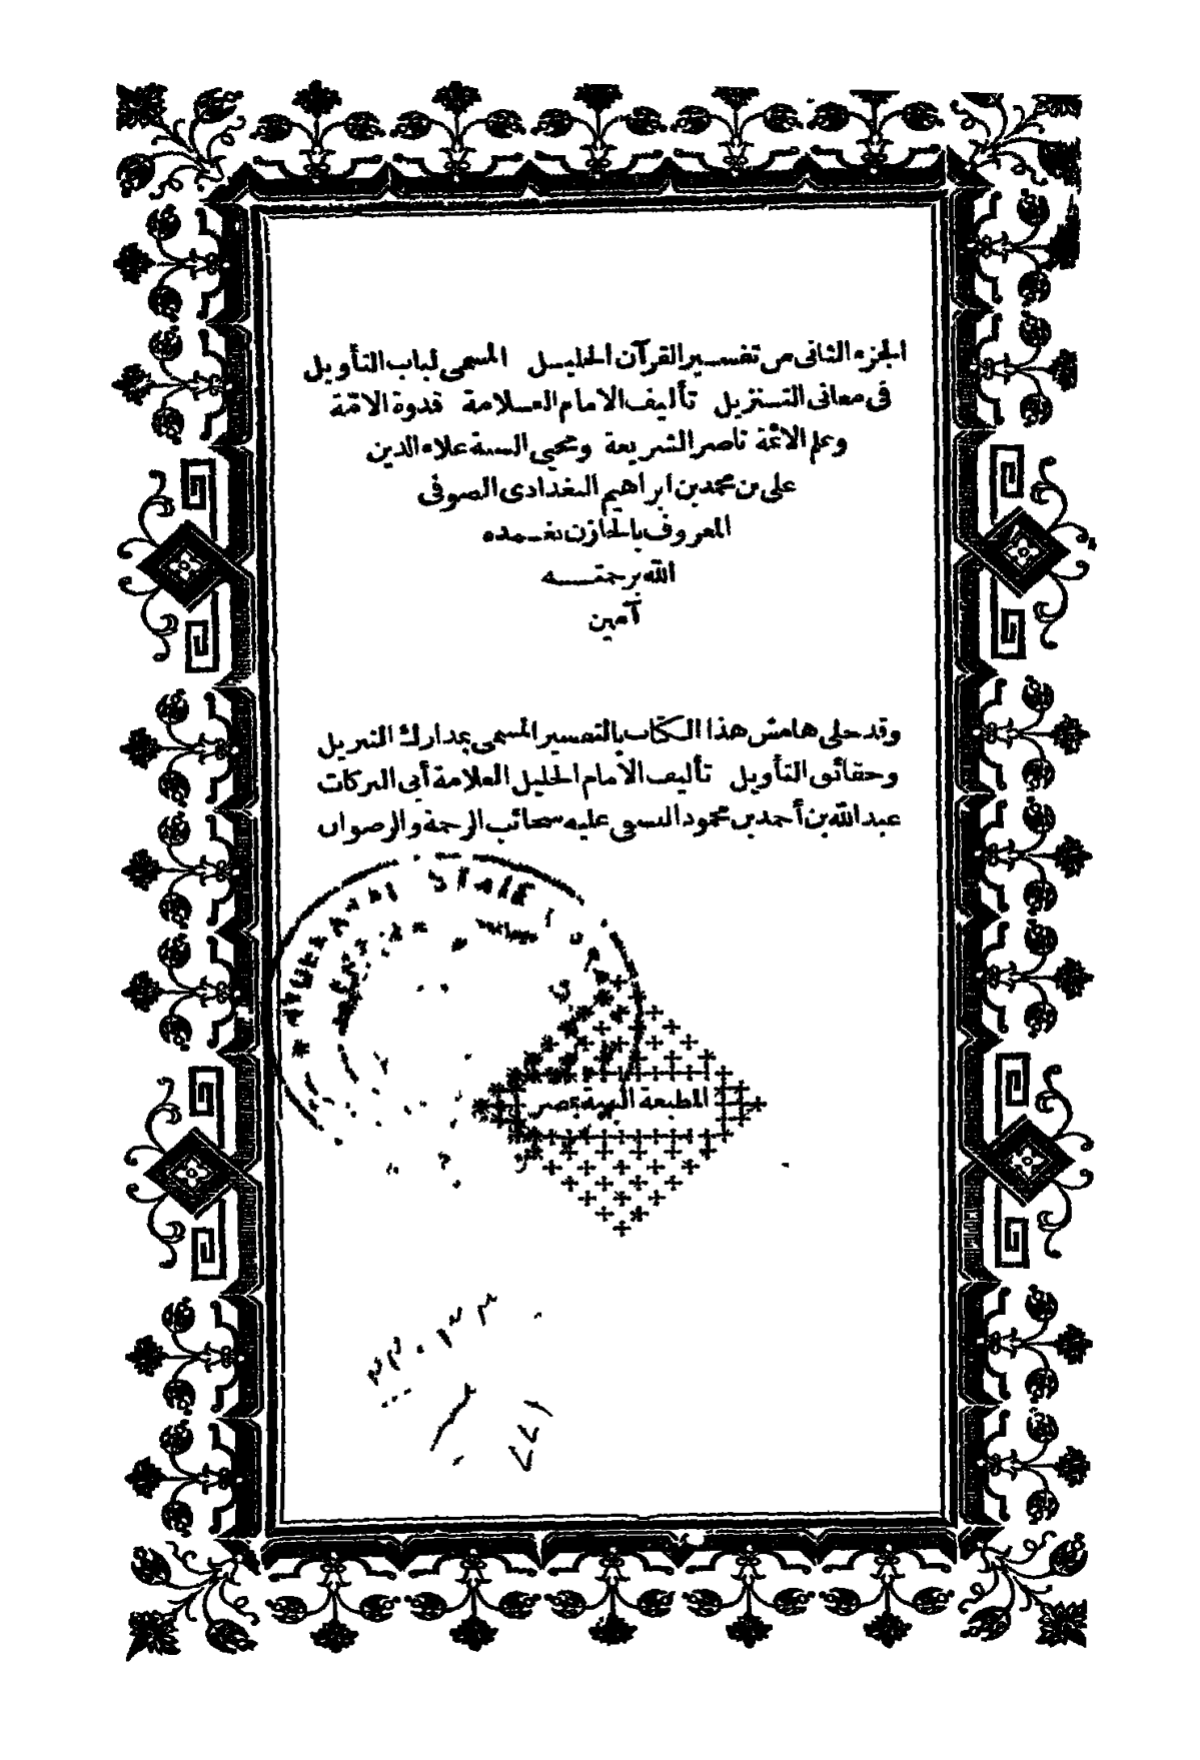 الجزء الثانى من تفسير القرآن الجليل المسمى لباب التأويل
فى معانى التنزيل تأليف الامام العلامة قدوة الامّة
وعلم الائمة ناصر الشريعة ومحيى السنة علاء الدين
على بن محمد بن ابراهيم البغدادى الصوفى
المعروف بالخازن تغمده
الله برحمته
آمين
وقد حلى هامش هذا الكتاب بالتفسير المسمى بمدارك التنزيل
وحقائق التأويل تأليف الامام الجليل العلامة أبى البركات
عبد الله بن أحمد بن محمود النسفى عليه سحائب الرحمة والرضوان
STATE
المطبعة البهية بمصر